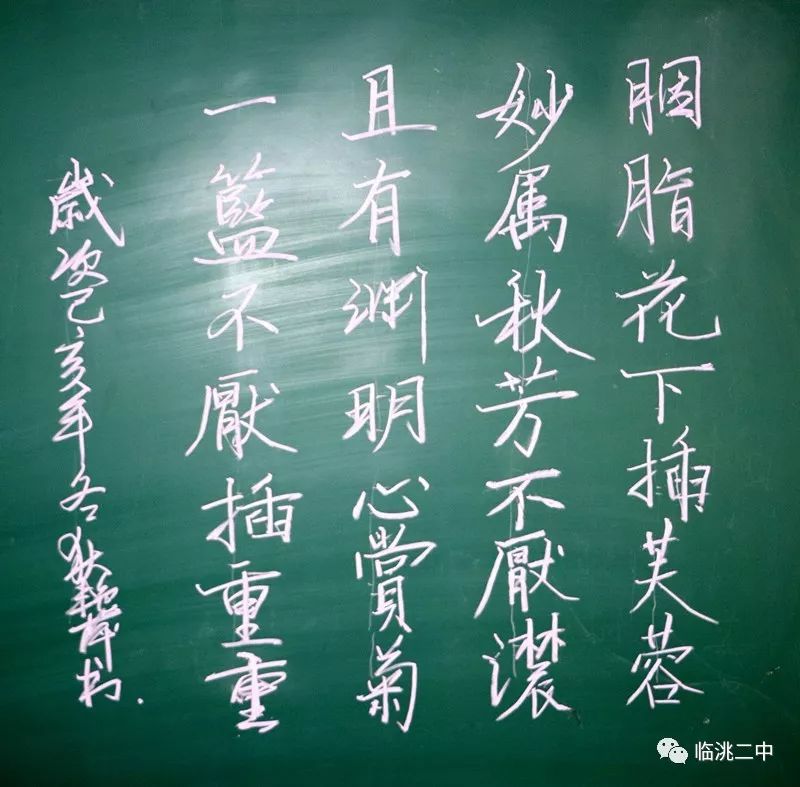 胭脂花下插芙蓉
妙属秋芳不厭濃
且有渊明心賞菊
一籃不厭插重重
歲次己亥年冬
书
临洮二中